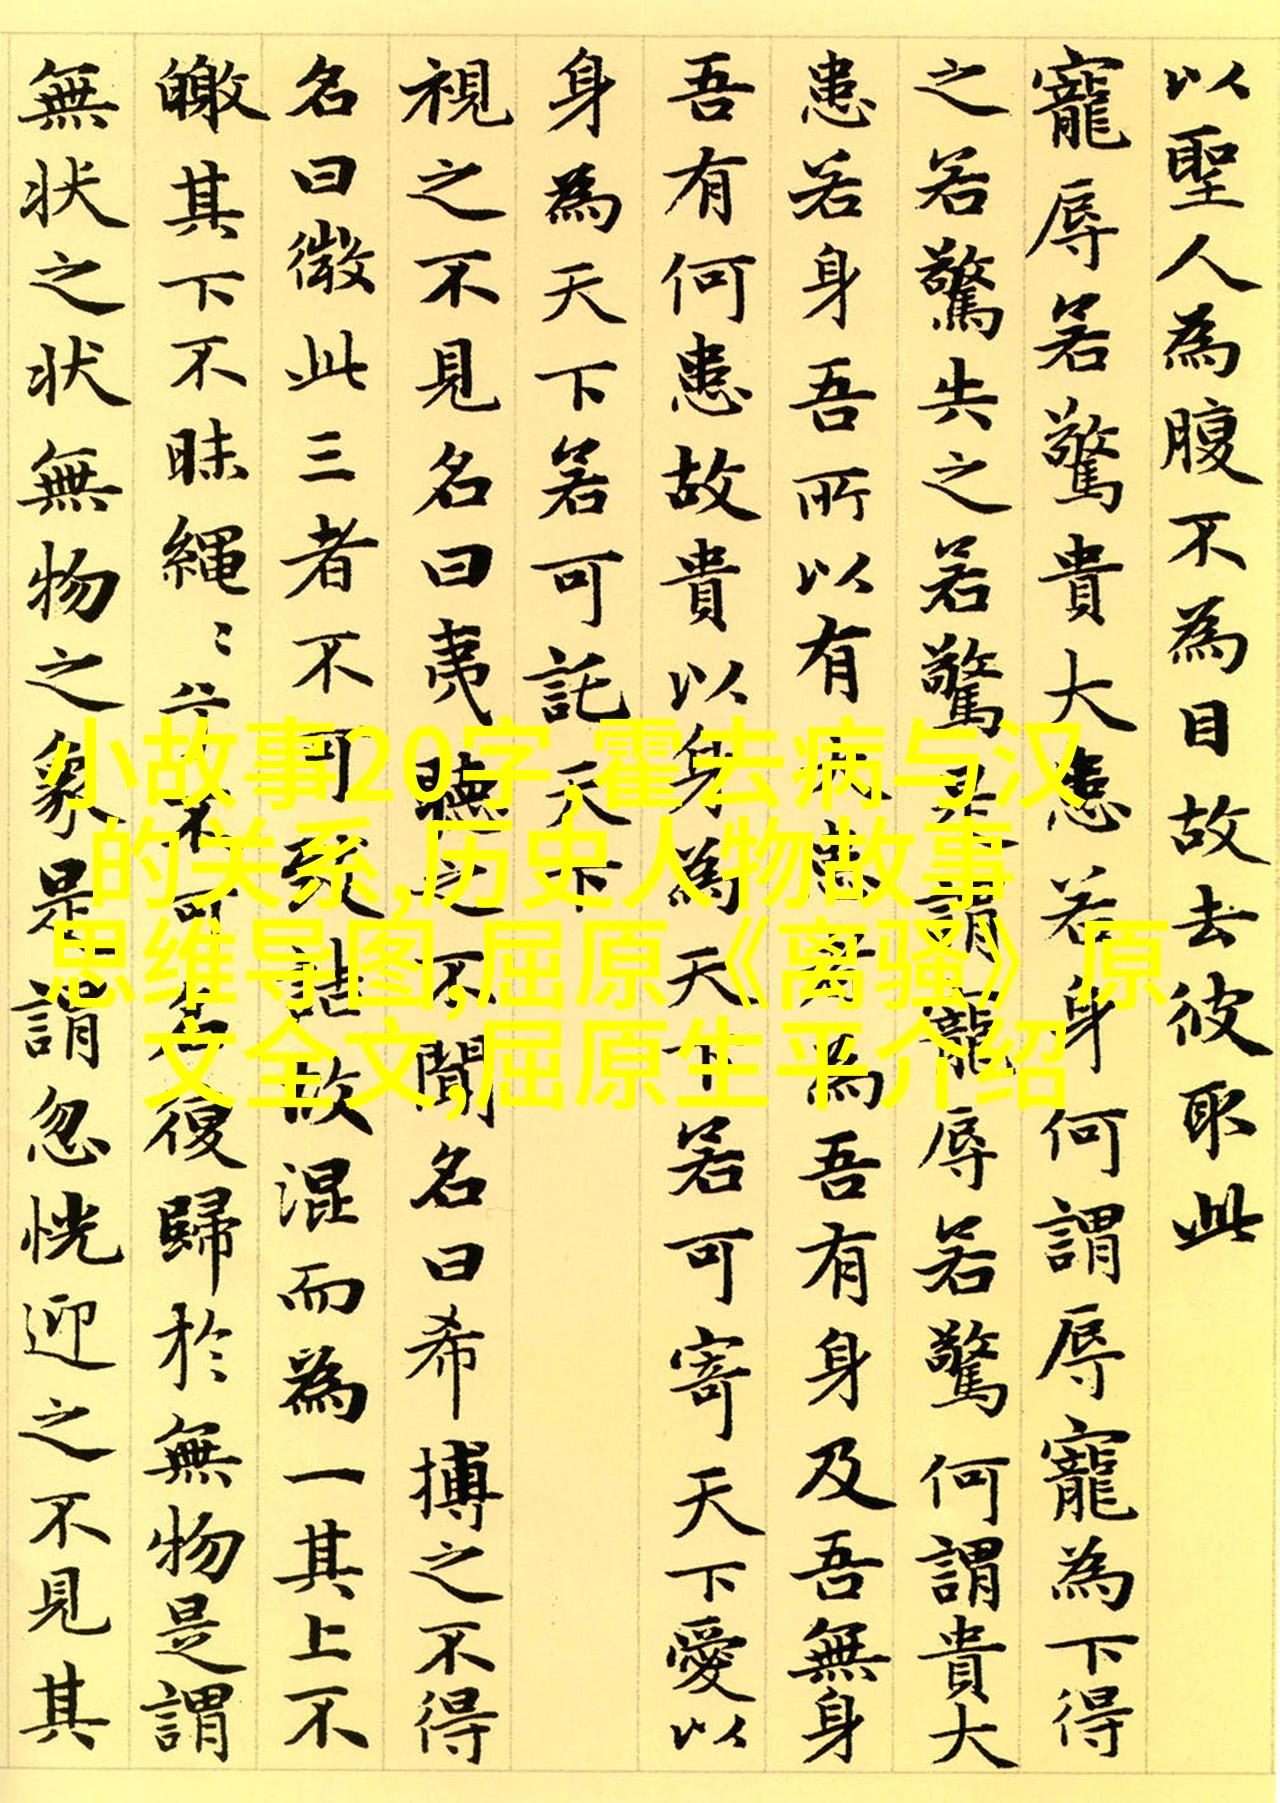 以聖人為腹不為目故去彼取此
寵辱若驚貴大患若身何謂辱寵為下得
之若驚失之若驚是謂寵辱若驚何謂貴大
患若身吾所以有大患者為吾有身及吾無身
吾有何患故貴以身為天下若可寄天下愛以
身為天下若可託天下
視之不見名曰夷聽之不聞名曰希搏之不得
名曰微此三者不可致詰故混而為一其上不
皦其下不昧繩〻兮不可名復歸於無物是謂
無状之状無物之象是謂忽恍迎之不見其
小故事20字,霍去病与汉
的关系,历史人物故事
思维导图,屈原《离骚》原
文全文,屈原生平介绍